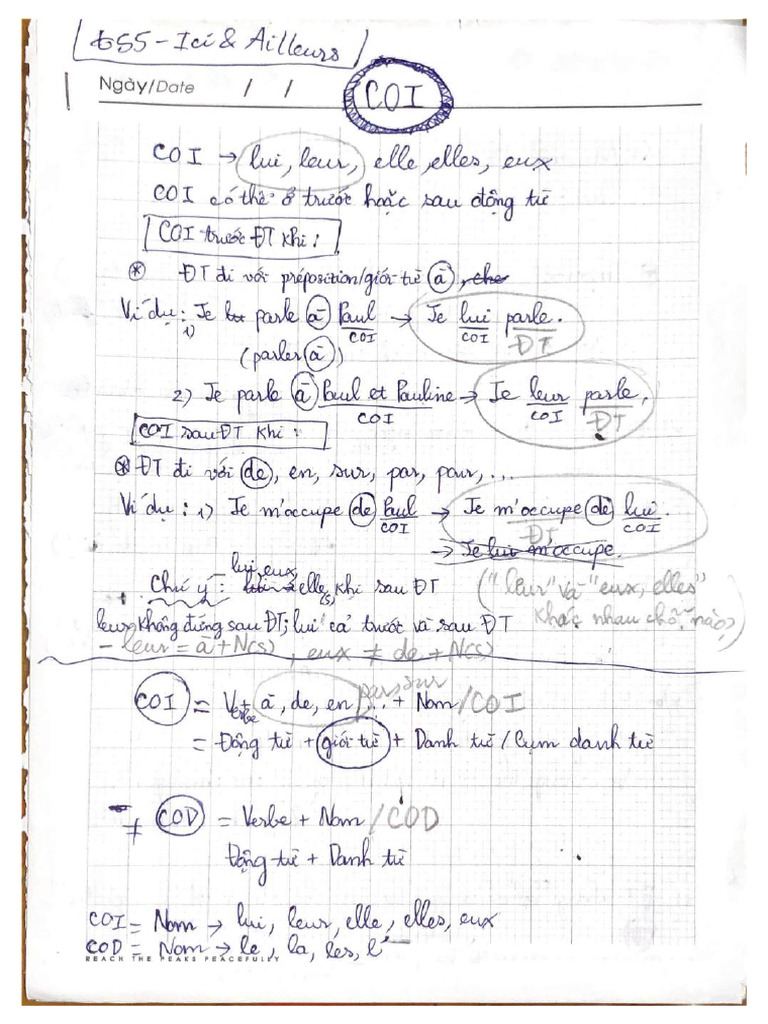 t55 - Ici & Ailleurs
Ngày/Date / /
COI
COI → lui, leur, elle, elles, eux
COI có thể ở trước hoặc sau động từ
COI trước ĐT khi :
* ĐT đi với préposition/giới từ à, che
Ví dụ : 1) Je parle à Paul → Je lui parle.
COI COI ĐT
(parler à)
2) Je parle à Paul et Pauline → Je leur parle.
COI COI ĐT
COI sau ĐT khi :
* ĐT đi với de, en, sur, par, pour, ...
Ví dụ : 1) Je m'occupe de Paul → Je m'occupe de lui.
COI ĐT COI
→ Je lui m'occupe.
lui, eux,
Chú ý : elle(s) khi sau ĐT ("leur" và "eux, elles"
khác nhau chỗ nào?)
leur không đứng sau ĐT; lui cả trước và sau ĐT
- leur = à + N(s), eux ≠ de + N(s)
par sur
COI = V + à, de, en, ... + Nom/COI
Verbe
= Động từ + giới từ + Danh từ / Cụm danh từ
≠ COD = Verbe + Nom/COD
Động từ + Danh từ
COI = Nom → lui, leur, elle, elles, eux
COD = Nom → le, la, les, l'
REACH THE PEAKS PEACEFULLY